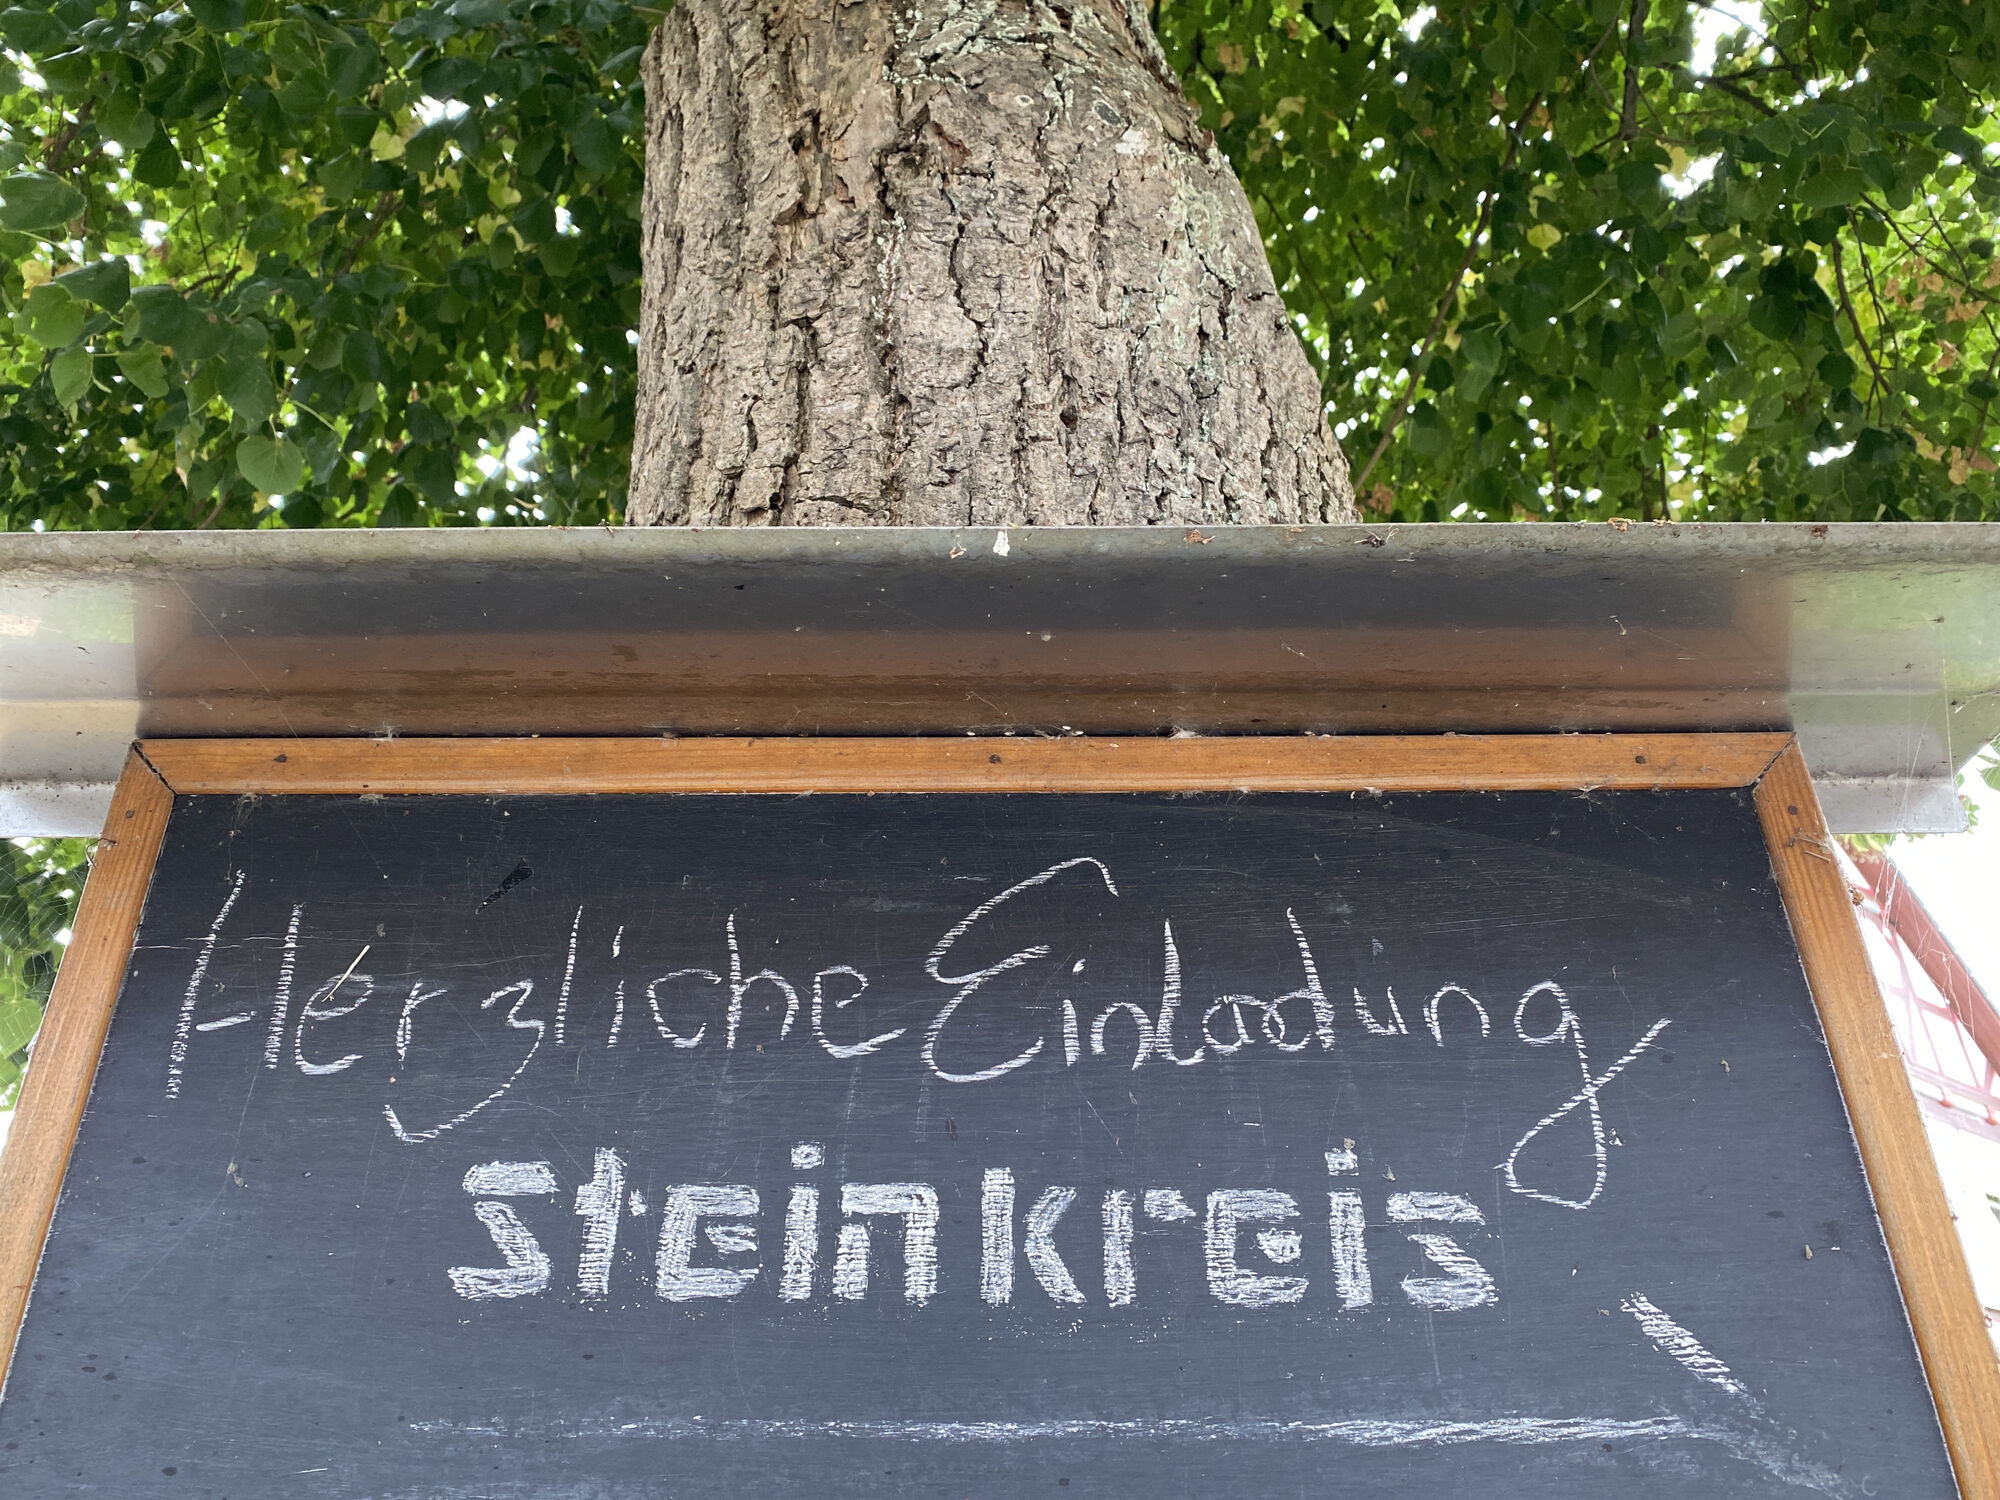 Herzliche Einladung
Steinkreis